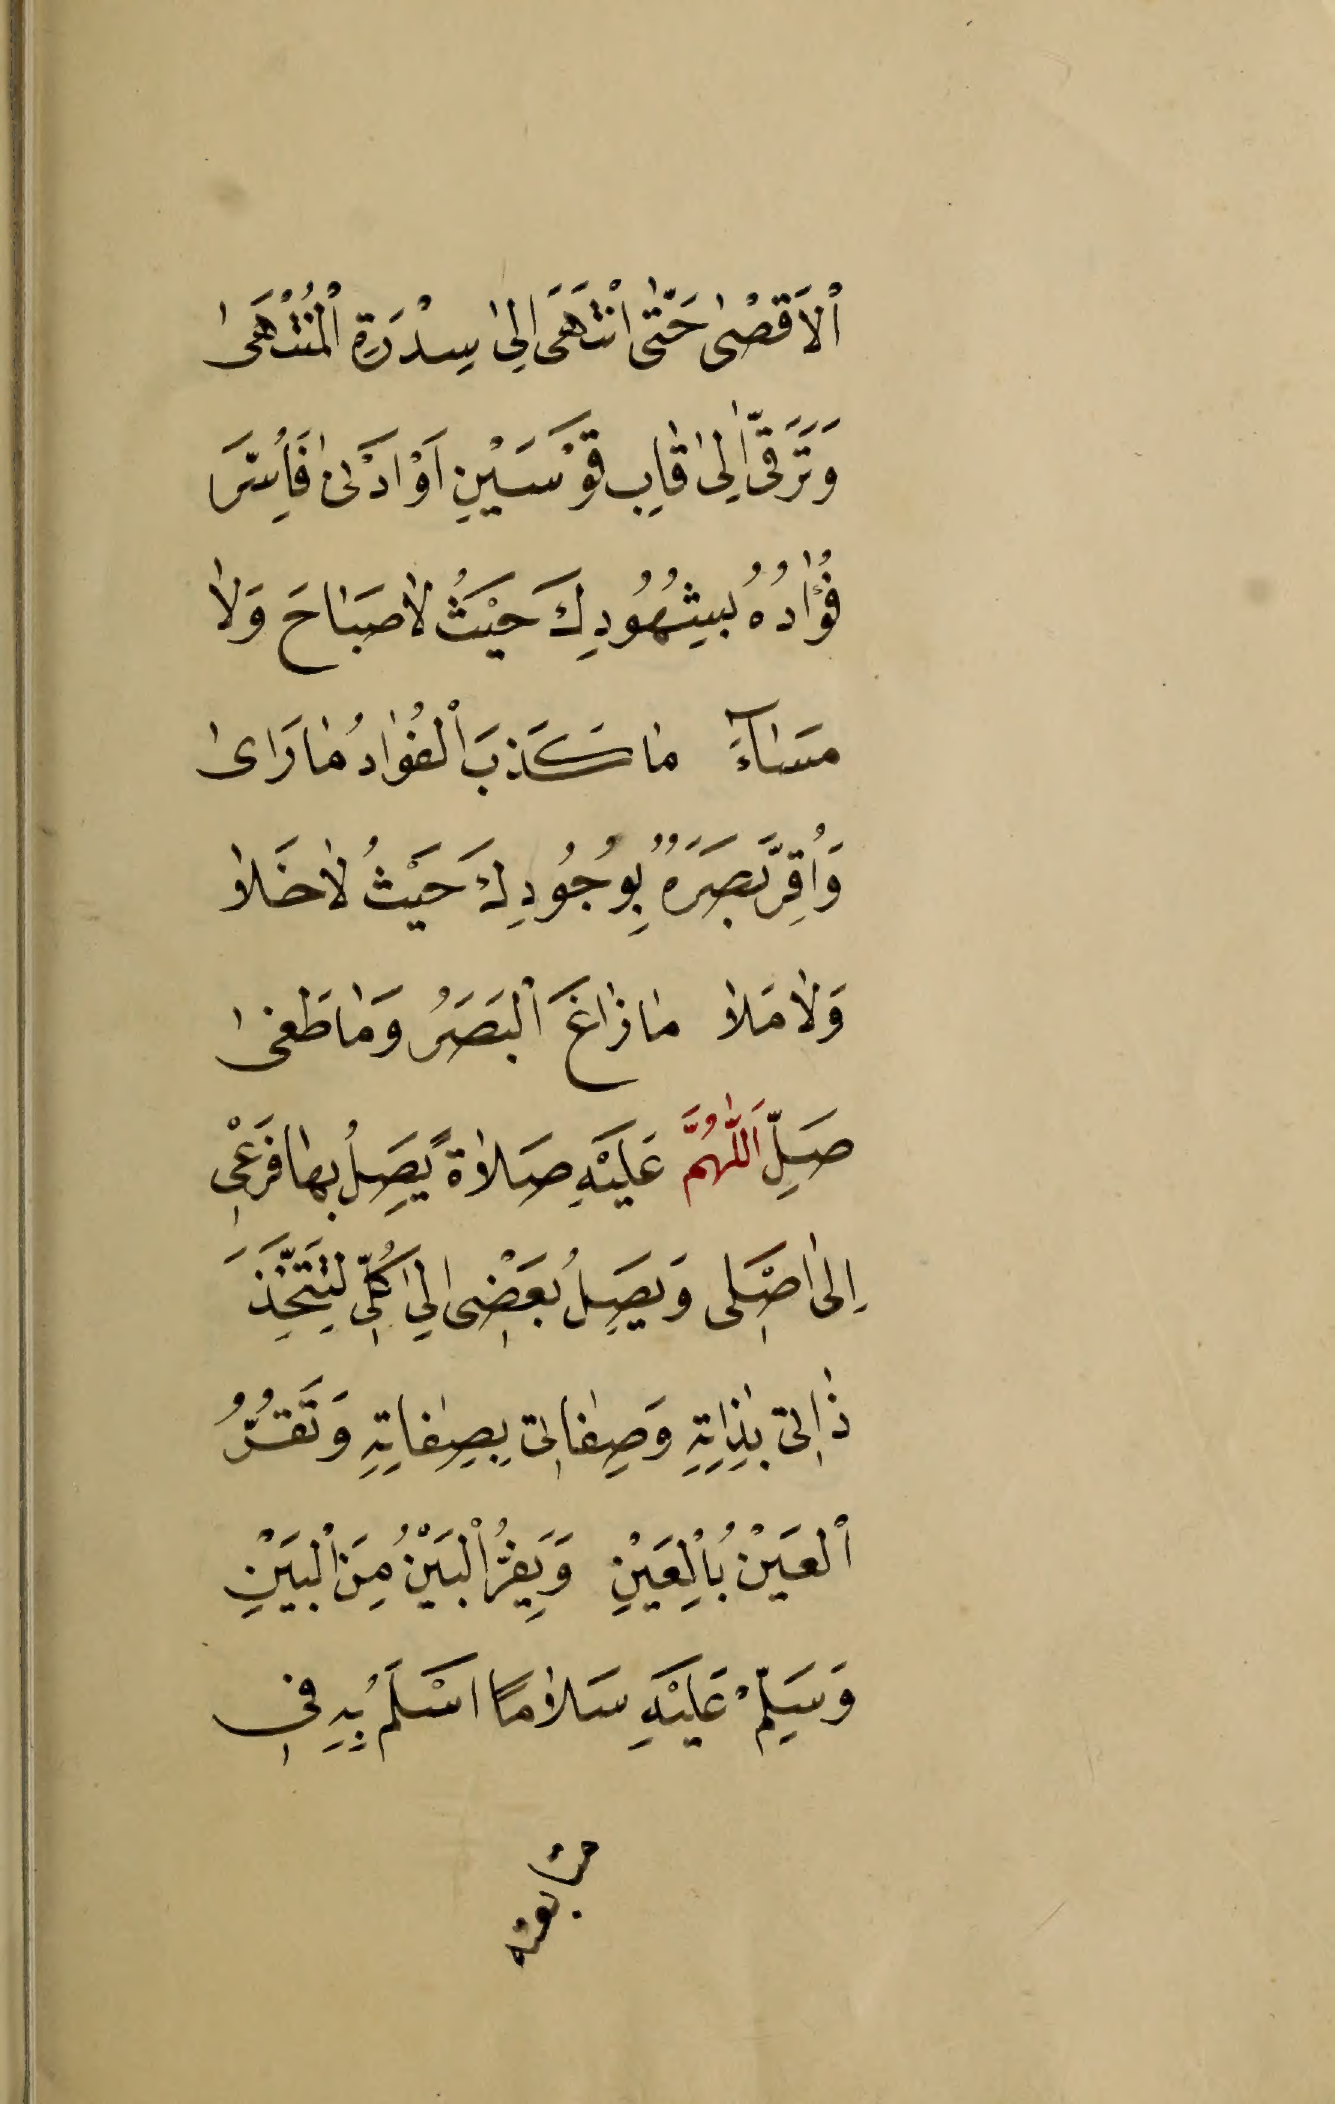 اْلاَقْصٰى حَتّٰى انْتَهَى اِلٰى سِدْرَةِ اْلمُنْتَهَى
وَتَرَقَّى اِلٰى قٰابِ قَوْسَيْنِ اَوْ اَدْنٰى فَاُسِرَّ
فُؤٰادُهُ بِشُهُودِكَ حَيْثُ لاٰ صَبٰاحَ وَلاٰ
مَسٰاۤءَ مٰا كَذَبَ اْلفُوٰادُ مٰا رَاىٰ
وَاُقِرَّ بَصَرُهُ بِوُجُودِكَ حَيْثُ لاٰ خَلاٰ
وَلاٰ مَلاٰ مٰا زٰاغَ اْلبَصَرُ وَمٰا طَغىٰ
صَلِّ اَللّٰهُمَّ عَلَيْهِ صَلاٰةً يَصِلُ بِهٰا فَرْعْى
اِلىٰ اَصْلى وَيَصِلُ بَعْضِى اِلىٰ كُلِّى لِتَتَّخِذَ
ذٰاتى بِذٰاتِهِ وَصِفٰاتى بِصِفٰاتِهِ وَتَقَرُّ
اْلعَيْنُ بِاْلعَيْنِ وَيَفِرُّ اْلبَيْنُ مِنَ اْلبَيْنِ
وَسَلِّمْ عَلَيْهِ سَلاٰمًا اَسْلَمُ بِهِ فى
متابعته